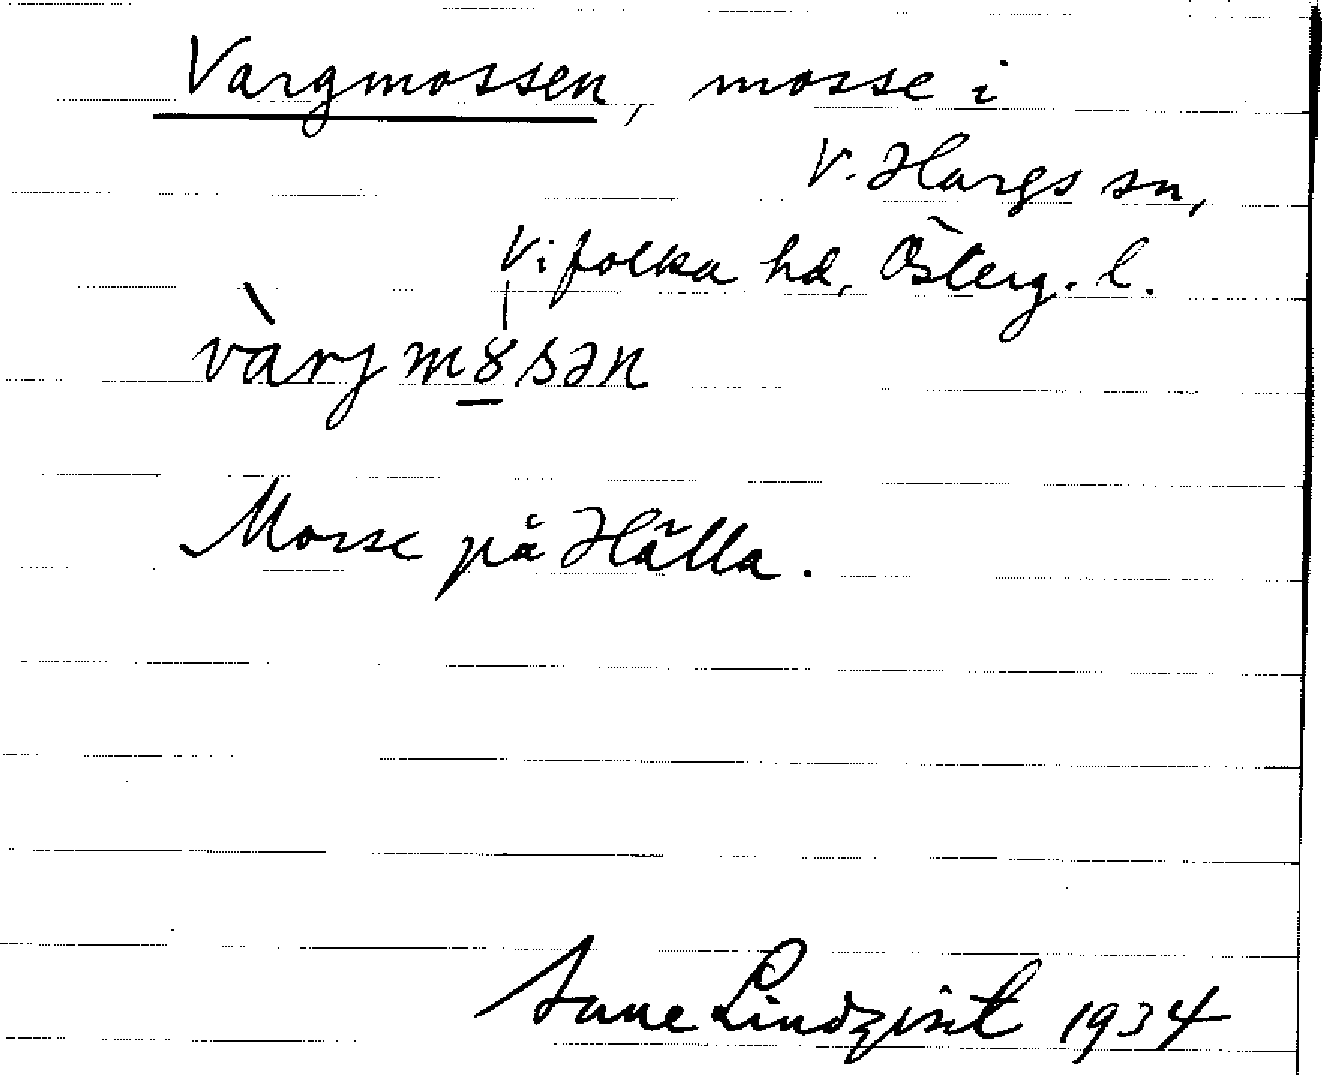 Vargmossen, mosse i
V. Hargs sn,
Vifolka hd, Österg. l.
värj mȣsən
Mosse på Hålla.
Sune Lindqvist 1934